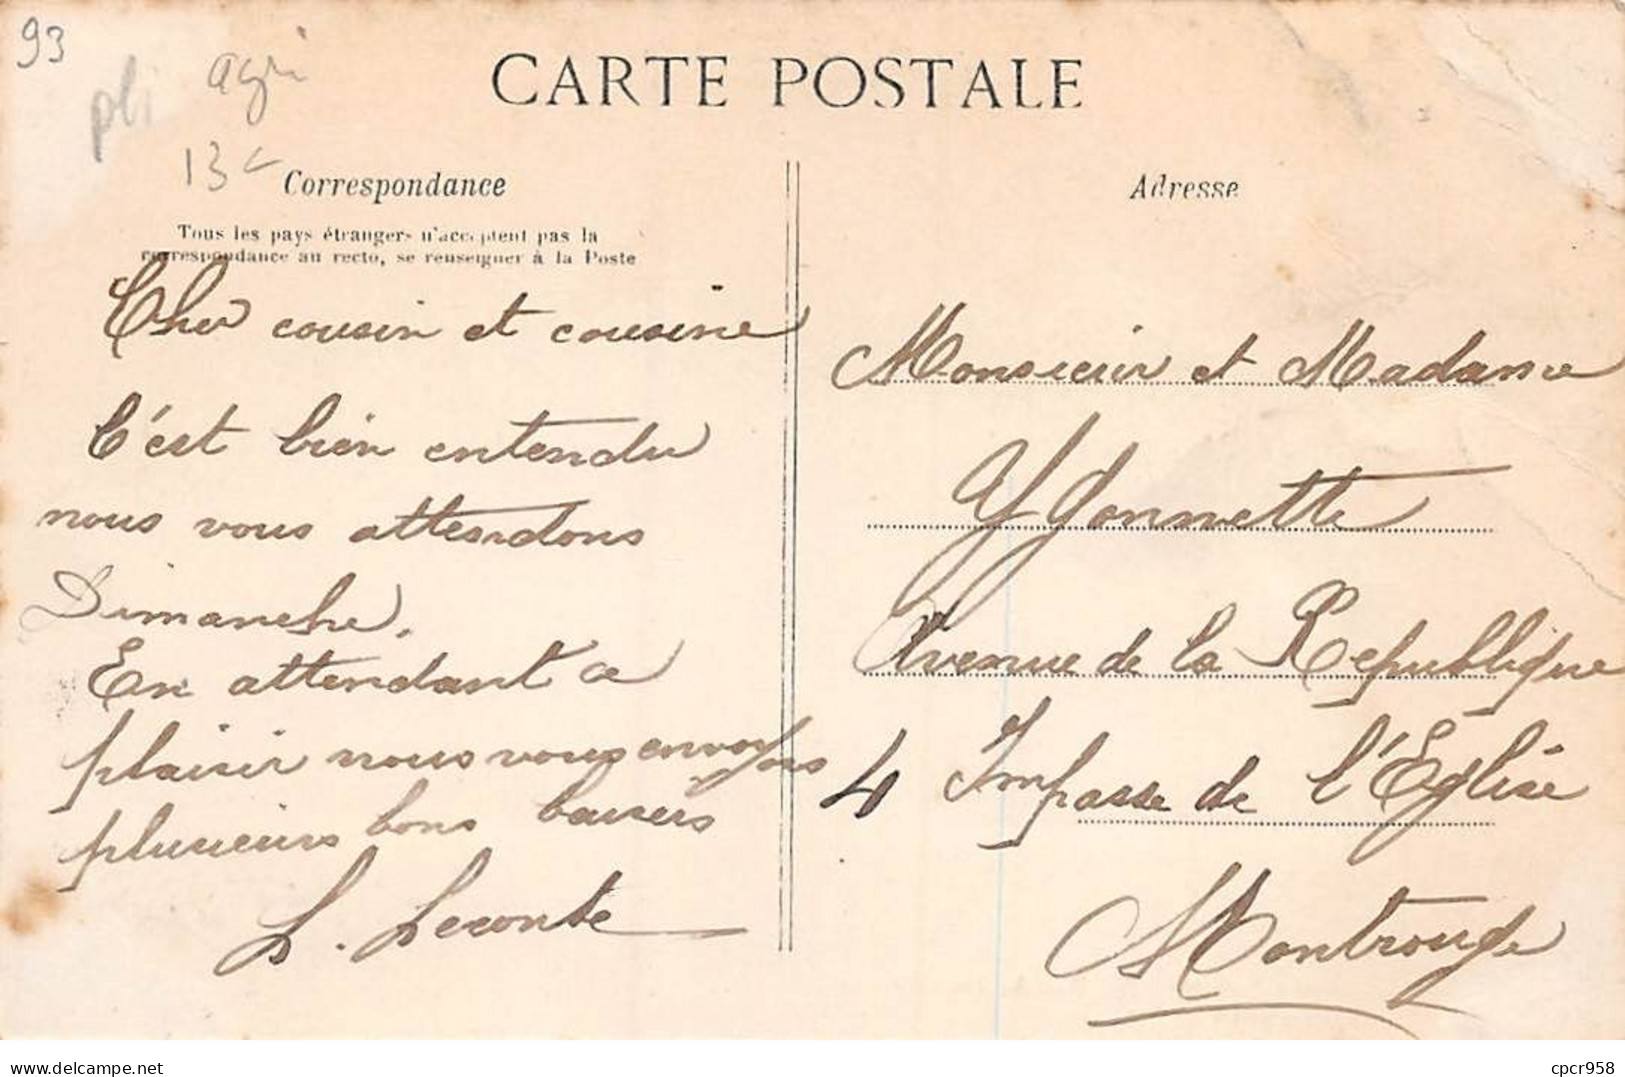 93
pli
agri
13
CARTE POSTALE
Correspondance
Tous les pays étrangers n'acceptent pas la
correspondance au recto, se renseigner à la Poste
Cher cousin et cousine
C'est bien entendu
nous vous attendons
Dimanche.
En attendant ce
plaisir nous vous envoyons
plusieurs bons baisers
L. Leconte
Adresse
Monsieur et Madame
Avenue de la Republique
4 Impasse de l'Eglise
Montrouge
delcampe.net
cpcr958